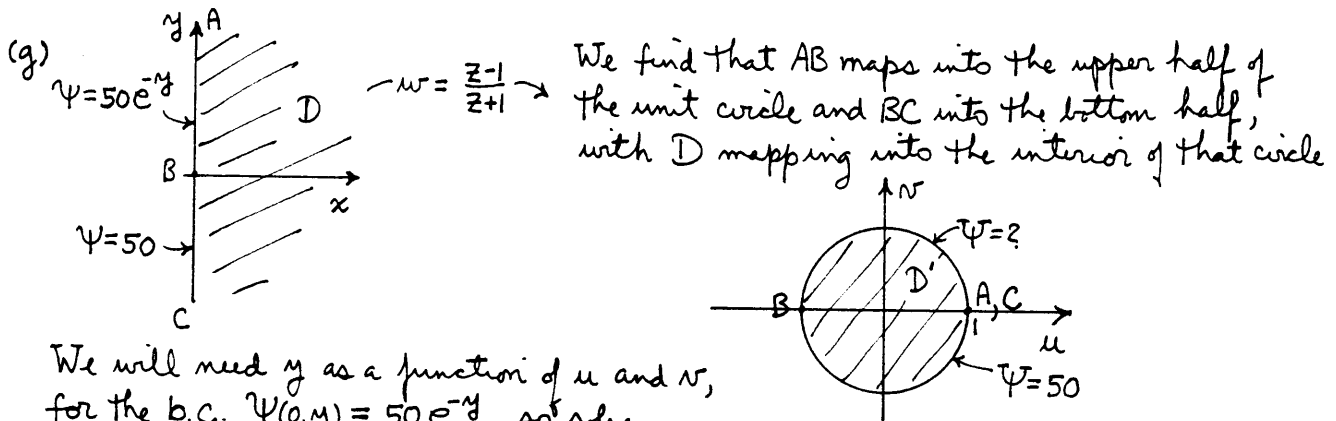 (g)
y A
Ψ=50e^{-y}
D
B
x
Ψ=50
C
w = \frac{z-1}{z+1}
We find that AB maps into the upper half of
the unit circle and BC into the bottom half,
with D mapping into the interior of that circle
v
Ψ=?
D'
B
A, C
1
u
Ψ=50
We will need y as a function of u and v,
for the b.c. Ψ(0,y) = 50e^{-y}